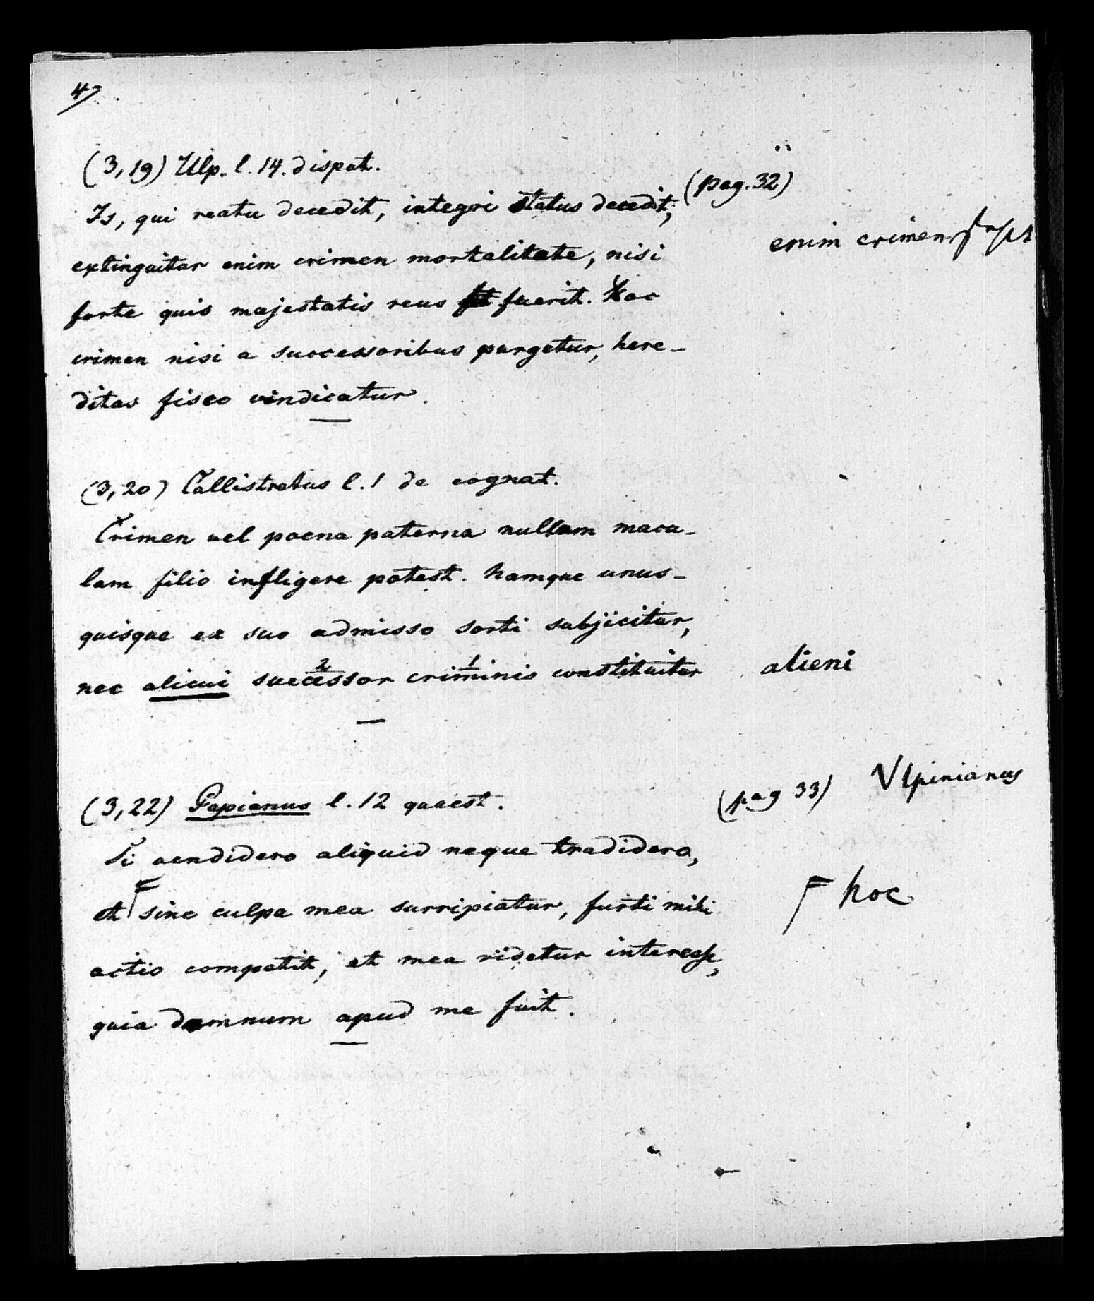 47
(3,19) Ulp. l. 14. disput.
(pag. 32)
Is, qui reatu decedit, integri status decedit;
enim crimen
extinguitur enim crimen mortalitate, nisi
forte quis majestatis reus fuerit. Hoc
crimen nisi a successoribus purgetur, here-
ditas fisco vindicatur.
(3,20) Callistratus l. 1 de cognat.
Crimen vel poena paterna nullam macu-
lam filio infligere potest. Namque unus-
quisque ex suo admisso sorti subjicitur,
nec alicui successor criminis constituitur
alieni
(3,22) Papianus l. 12 quaest.
(pag 33) Vlpinianus
Si vendidero aliquid neque tradidero,
et sine culpa mea surripiatur, furti mihi
hoc
actio competit, et mea videtur interesse,
quia domnum apud me fuit.